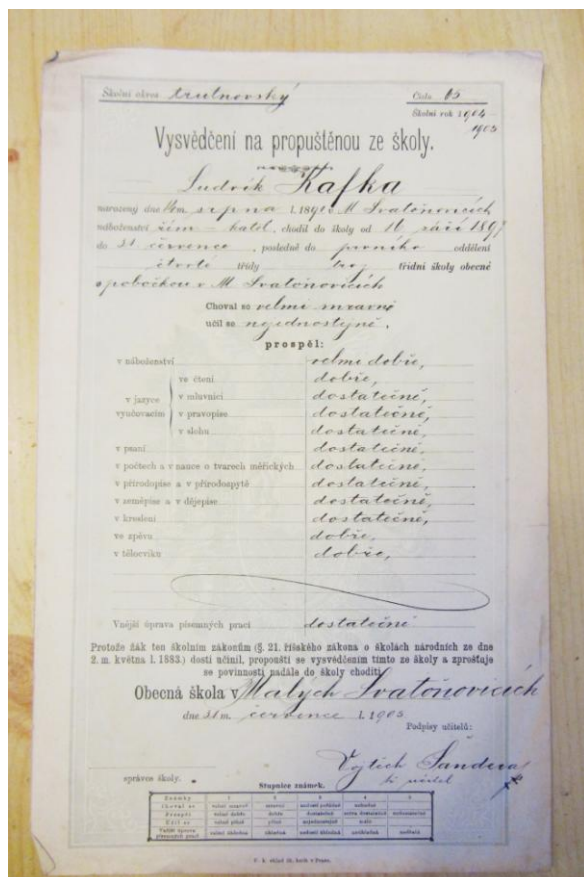 Školní okres trutnovský Číslo 65
Školní rok 1904–
1905
Vysvědčení na propuštěnou ze školy.
Ludvík Kafka
narozený dne m. srpna l. 1890 v M Svatoňovicích
náboženství řím – katol. chodil do školy od 16 září 1897
do 31 července, posledně do prvního oddělení
čtvrté třídy troj třídní školy obecné
s pobočkou v M Svatoňovicích
Choval se velmi mravně
učil se nejednostejně,
prospěl:
v náboženství velmi dobře,
v jazyce vyučovacím
ve čtení dobře,
v mluvnici dostatečně,
v pravopise dostatečně,
v slohu dostatečně,
v psaní dostatečně,
v počtech a v nauce o tvarech měřických dostatečně,
v přírodopise a v přírodozpytě dostatečně,
v zeměpise a v dějepise dostatečně,
v kreslení dostatečně,
ve zpěvu dobře,
v tělocviku dobře,
Vnější úprava písemných prací dostatečně
Protože žák ten školním zákonům (§. 21. říšského zákona o školách národních ze dne
2. m. května l. 1883.) dosti učinil, propouští se vysvědčením tímto ze školy a zprošťuje
se povinnosti nadále do školy choditi.
Obecná škola v Malých Svatoňovicích
dne 31 m. července l. 1905
Podpisy učitelů:
Vojtěch Šandera
správce školy. učitel
Stupnice známek.
Známky 1 2 3 4 5
Choval se
Prospěl velmi dobře dobře dostatečně nedostatečně
Učil se
Vnější úprava
písemných prací